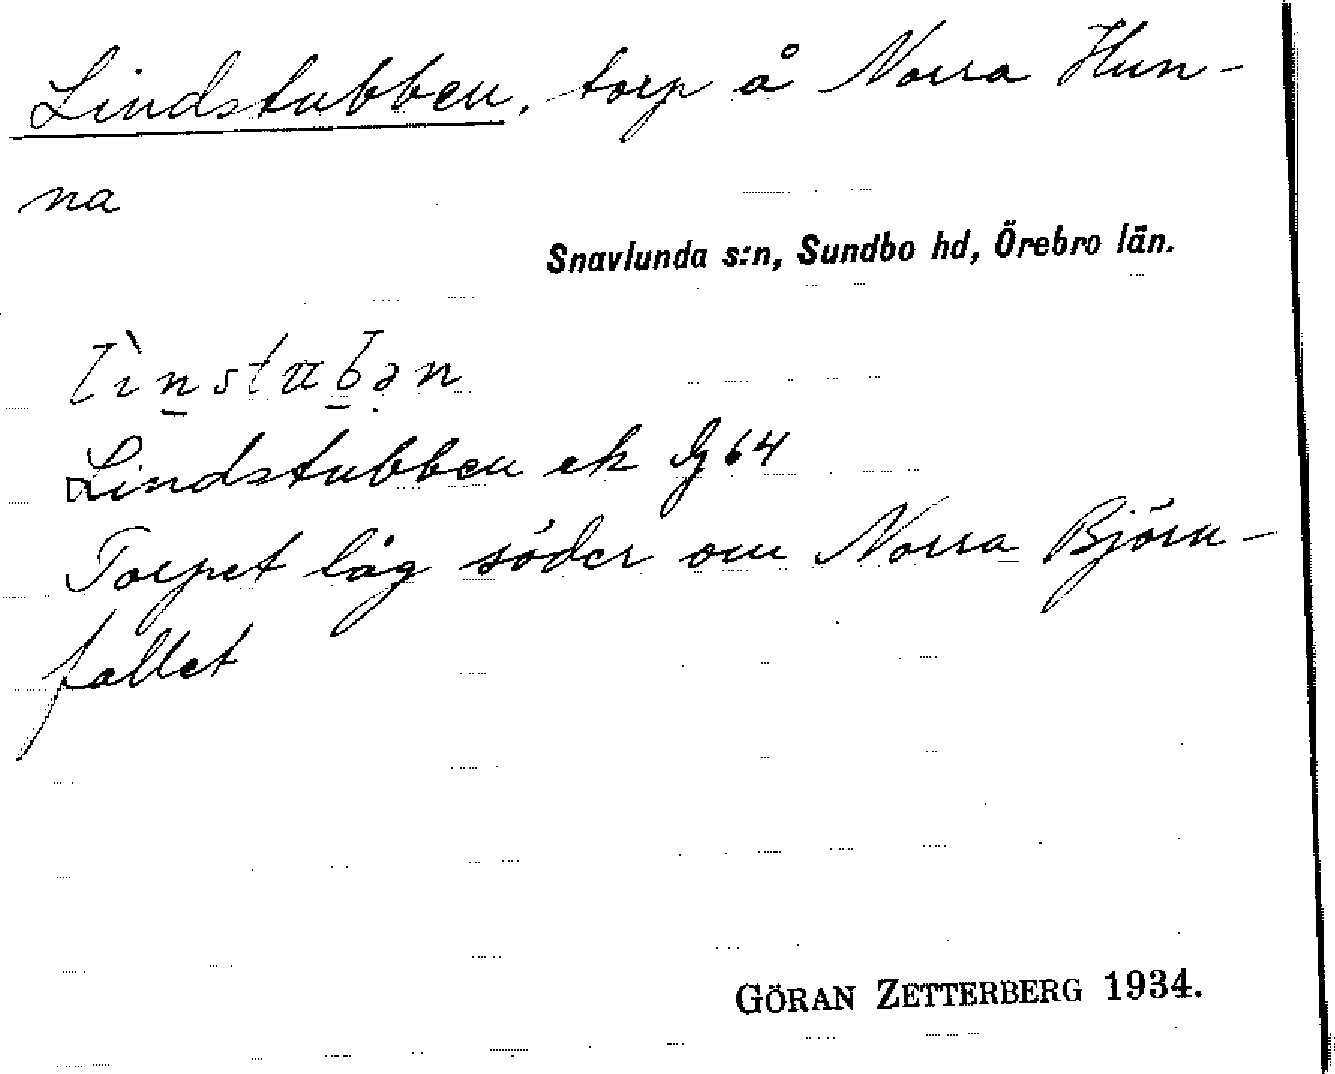 Lindstubben, torp å Norra Hun-
na
Snavlunda s:n, Sundbo hd, Örebro län.
Lindstubben ek G 64
Torpet låg söder om Norra Björn-
fallet
GÖRAN ZETTERBERG 1934.